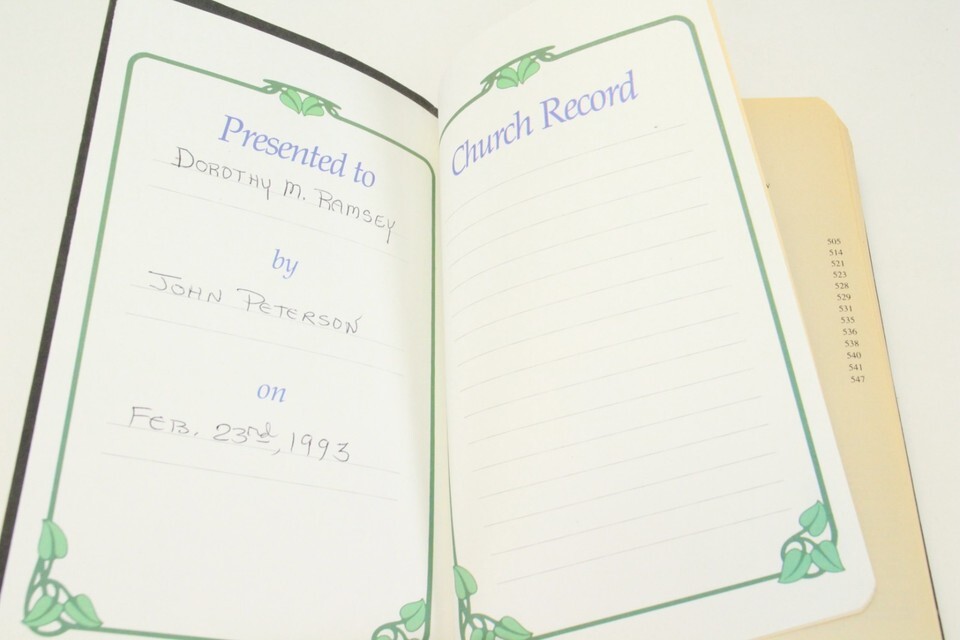 Presented to
DOROTHY M. RAMSEY
by
JOHN PETERSON
on
FEB. 23rd, 1993
Church Record
505
514
521
523
528
529
531
535
536
538
540
541
547